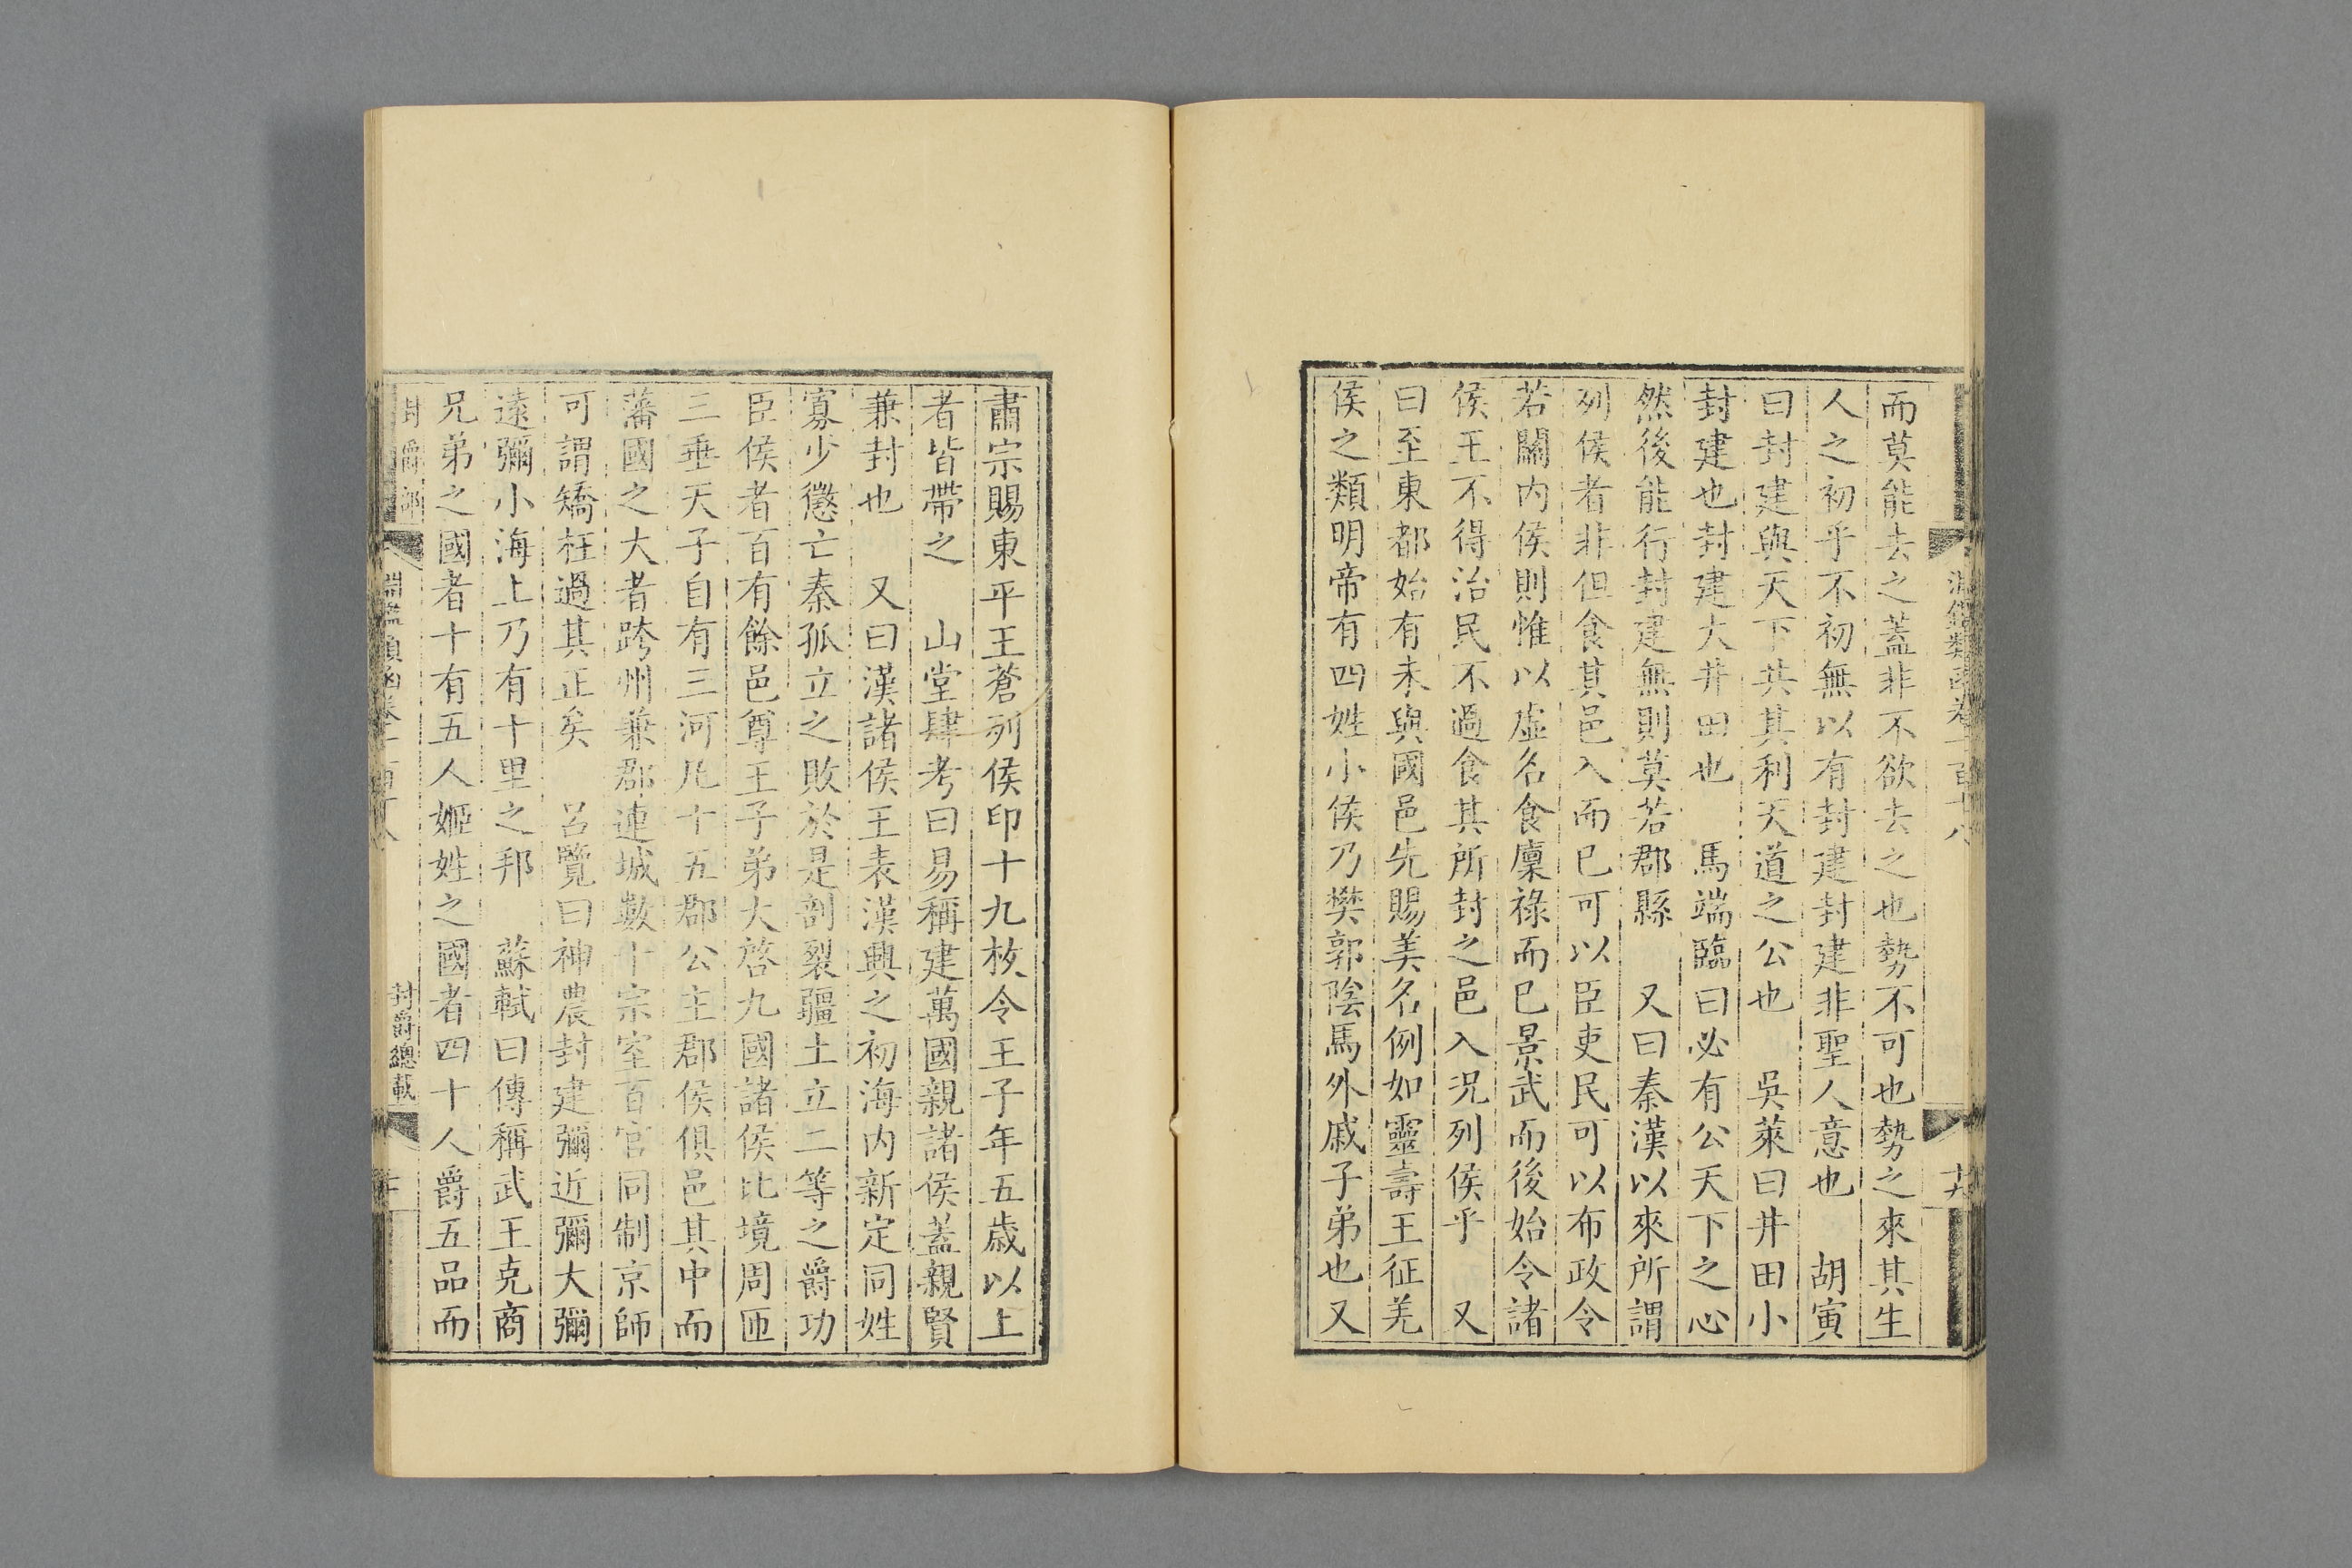 淵鑑類函卷一百十八
十九
而莫能去之蓋非不欲去之也勢不可也勢之來其生
人之初乎不初無以有封建封建非聖人意也　胡寅
曰封建與天下共其利天道之公也　吳萊曰井田小
封建也封建大井田也　馬端臨曰必有公天下之心
然後能行封建無則莫若郡縣　又曰秦漢以來所謂
列侯者非但食其邑入而已可以臣吏民可以布政令
若關內侯則惟以虛名食廩祿而已景武而後始令諸
侯王不得治民不過食其所封之邑入況列侯乎　又
曰至東都始有未與國邑先賜美名例如靈壽王征羌
侯之類明帝有四姓小侯乃樊郭陰馬外戚子弟也又
肅宗賜東平王蒼列侯印十九枚令王子年五歲以上
者皆帶之　山堂肆考曰易稱建萬國親諸侯蓋親賢
兼封也　又曰漢諸侯王表漢興之初海內新定同姓
寡少懲亡秦孤立之敗於是剖裂疆土立二等之爵功
臣侯者百有餘邑尊王子弟大啓九國諸侯比境周匝
三垂天子自有三河凡十五郡公主郡侯俱邑其中而
藩國之大者跨州兼郡連城數十宗室百官同制京師
可謂矯枉過其正矣　呂覽曰神農封建彌近彌大彌
遠彌小海上乃有十里之邦　蘇軾曰傳稱武王克商
兄弟之國者十有五人姬姓之國者四十人爵五品而
封爵部
淵鑑類函卷一百十八
封爵總載